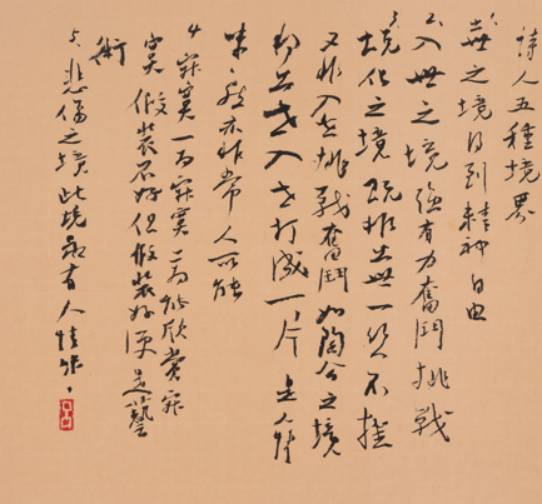 詩人五種境界
1、出世之境得到精神自由
2、入世之境強有力奮鬥挑戰
3、境化之境既非出世一絲不掛
又非入世挑戰奮鬥如陶公之境
即出世入世打成一片是人情
味、然亦非常人所能
4 寂寞一為寂寞二為能欣賞寂
寞假裝不好但假裝好便是藝
術
5、悲傷之境此境有人情味、